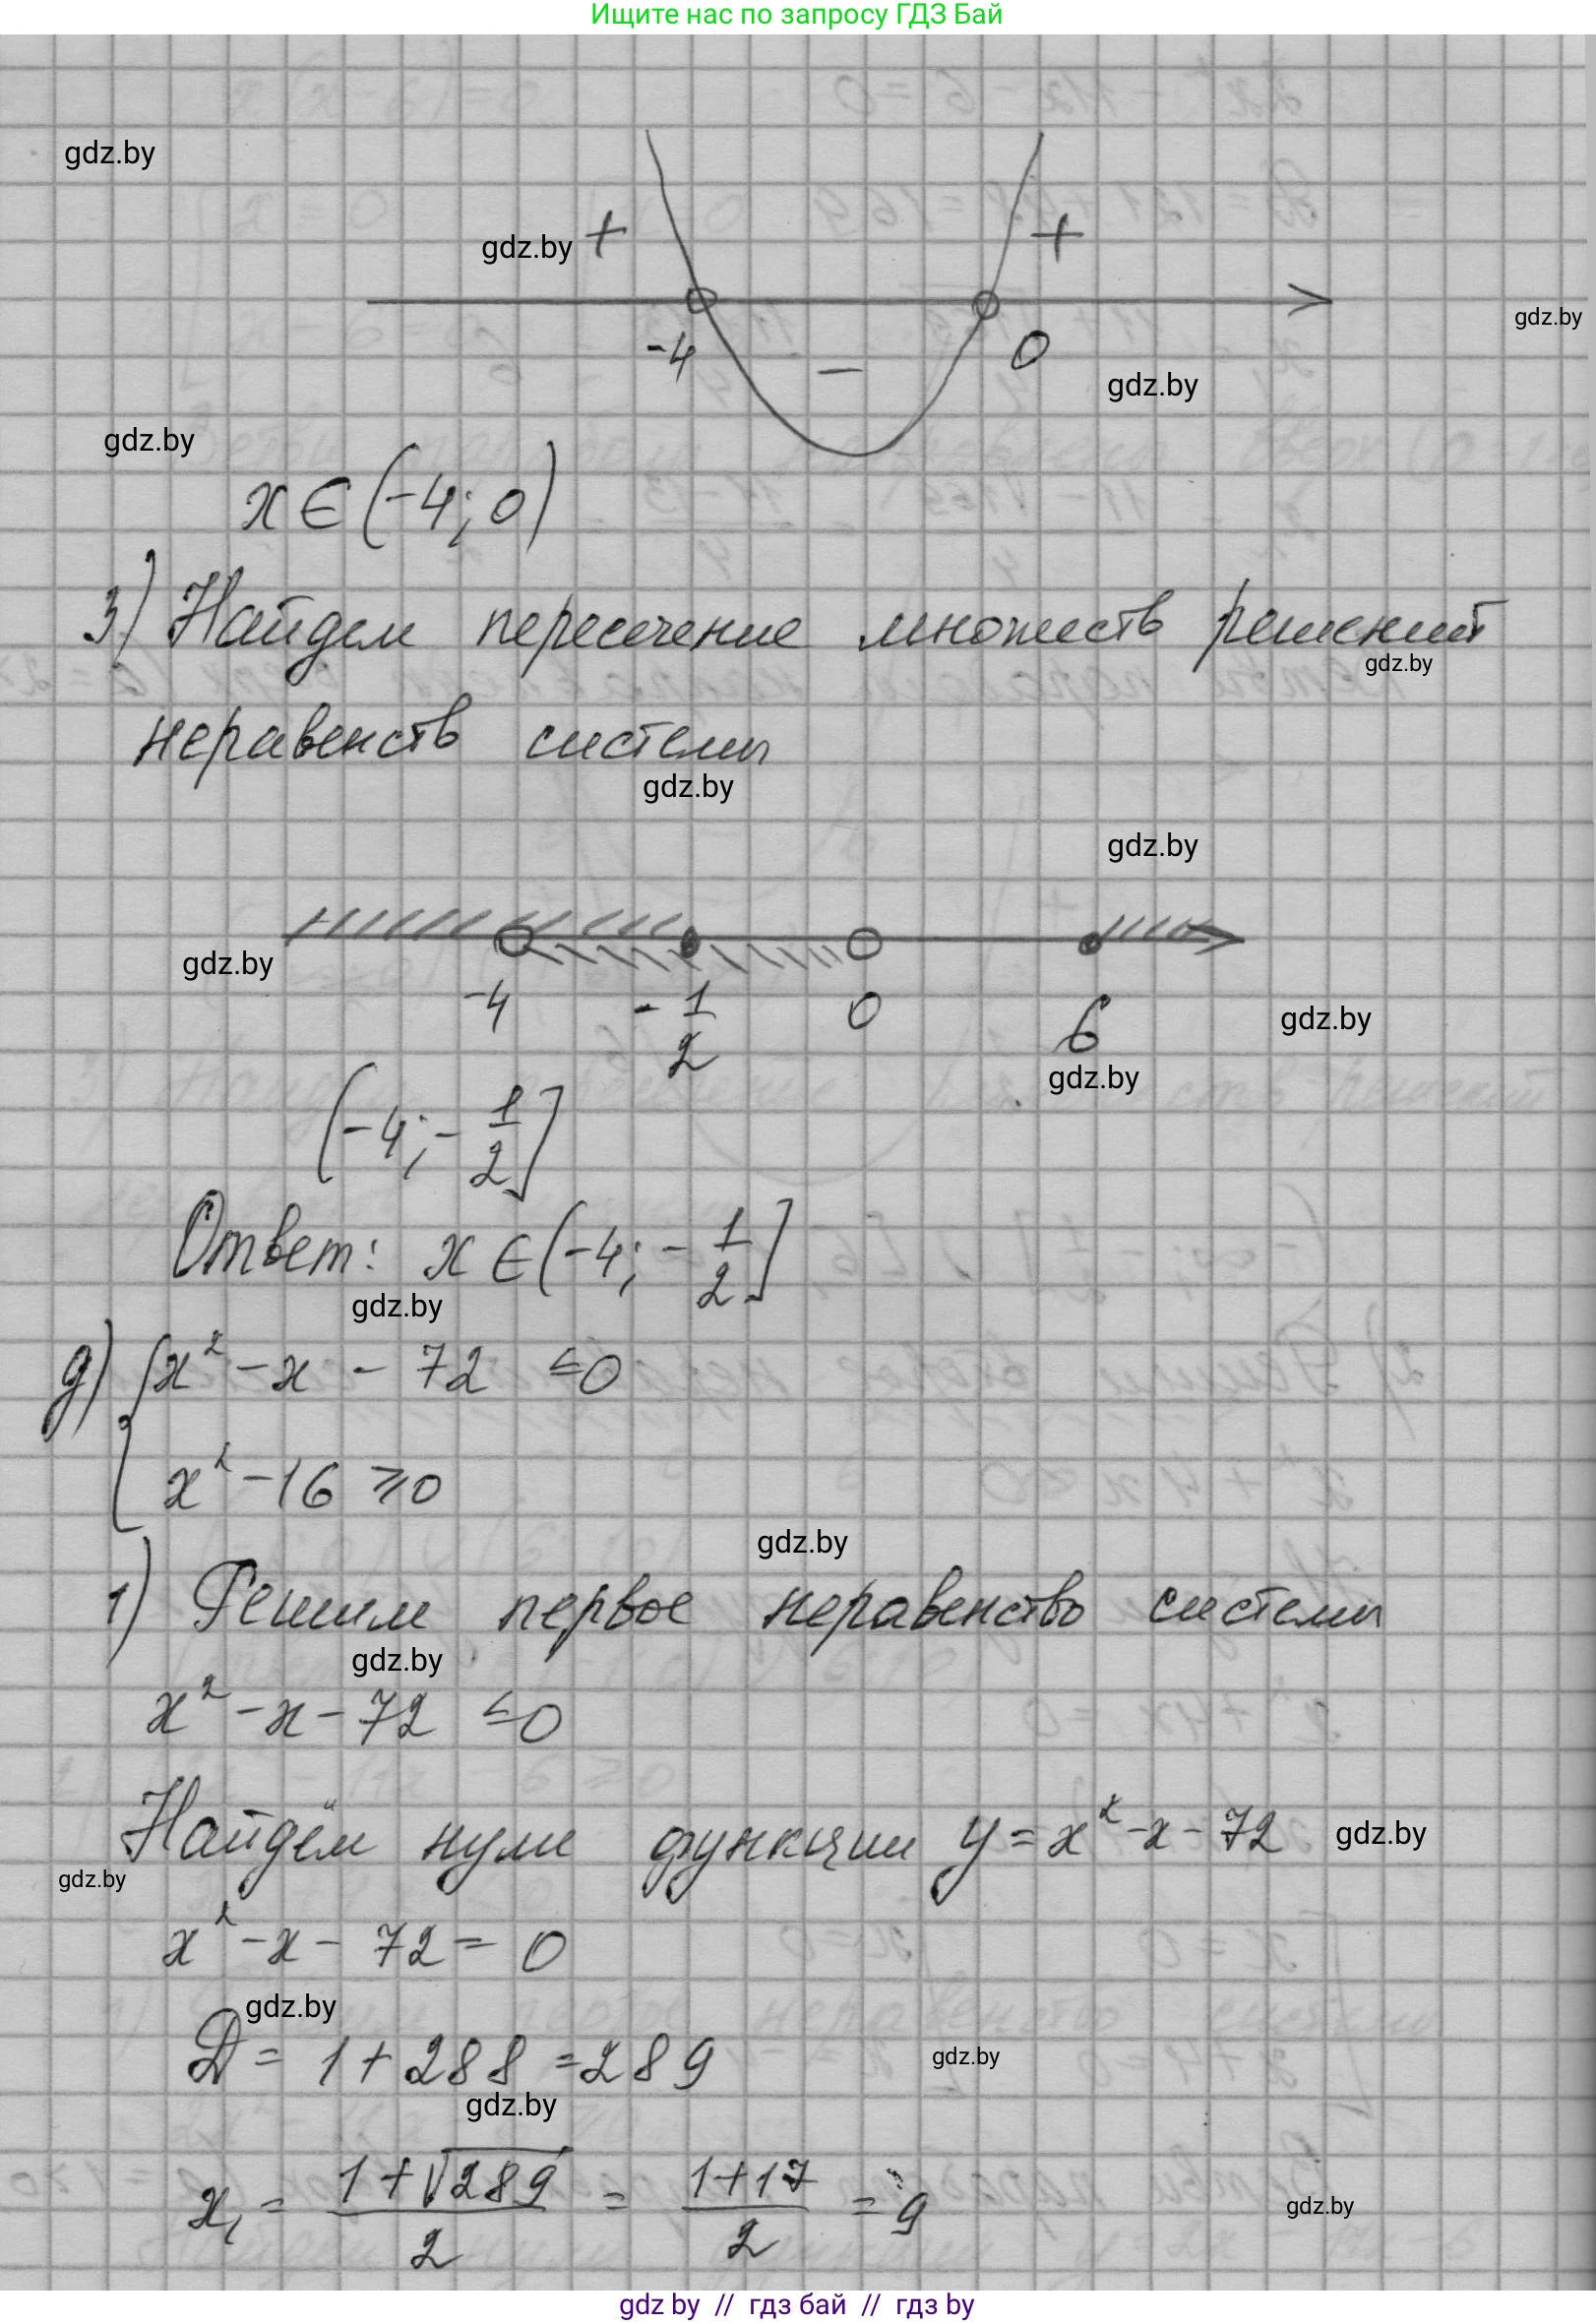 Ищите нас по запросу ГДЗ Бай
gdz.by
gdz.by + +
gdz.by
-4 − 0
gdz.by
gdz.by
x ∈ (-4; 0)
3) Найдем пересечение множеств решений
gdz.by
неравенств системы
gdz.by
gdz.by
gdz.by
-4 -1/2 0 6
gdz.by
gdz.by
(-4; -1/2]
Ответ: x ∈ (-4; -1/2]
gdz.by
д) { x² - x - 72 ≤ 0
x² - 16 ≥ 0
gdz.by
1) Решим первое неравенство системы
gdz.by
x² - x - 72 ≤ 0
Найдём нули функции y = x² - x - 72 gdz.by
gdz.by
x² - x - 72 = 0
gdz.by
D = 1 + 288 = 289
gdz.by
gdz.by
x₁ = (1 + √289)/2 = (1 + 17)/2 = 9
gdz.by
gdz by // гдз бай // гдз by